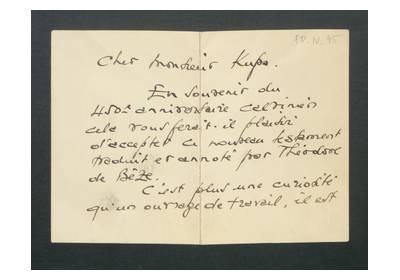 Cher monsieur Kupa.
En souvenir du
450e anniversaire calvinien
cela vous ferait-il plaisir
d'accepter ce nouveau testament
traduit et annoté par Théodore
de Bèze.
C'est plus une curiosité
qu'un ouvrage de travail, il est